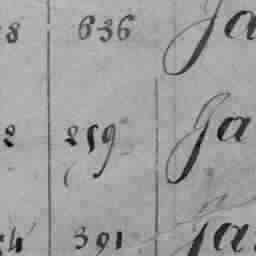 8 636 Ja
2 259 Ja
54 391 Ja